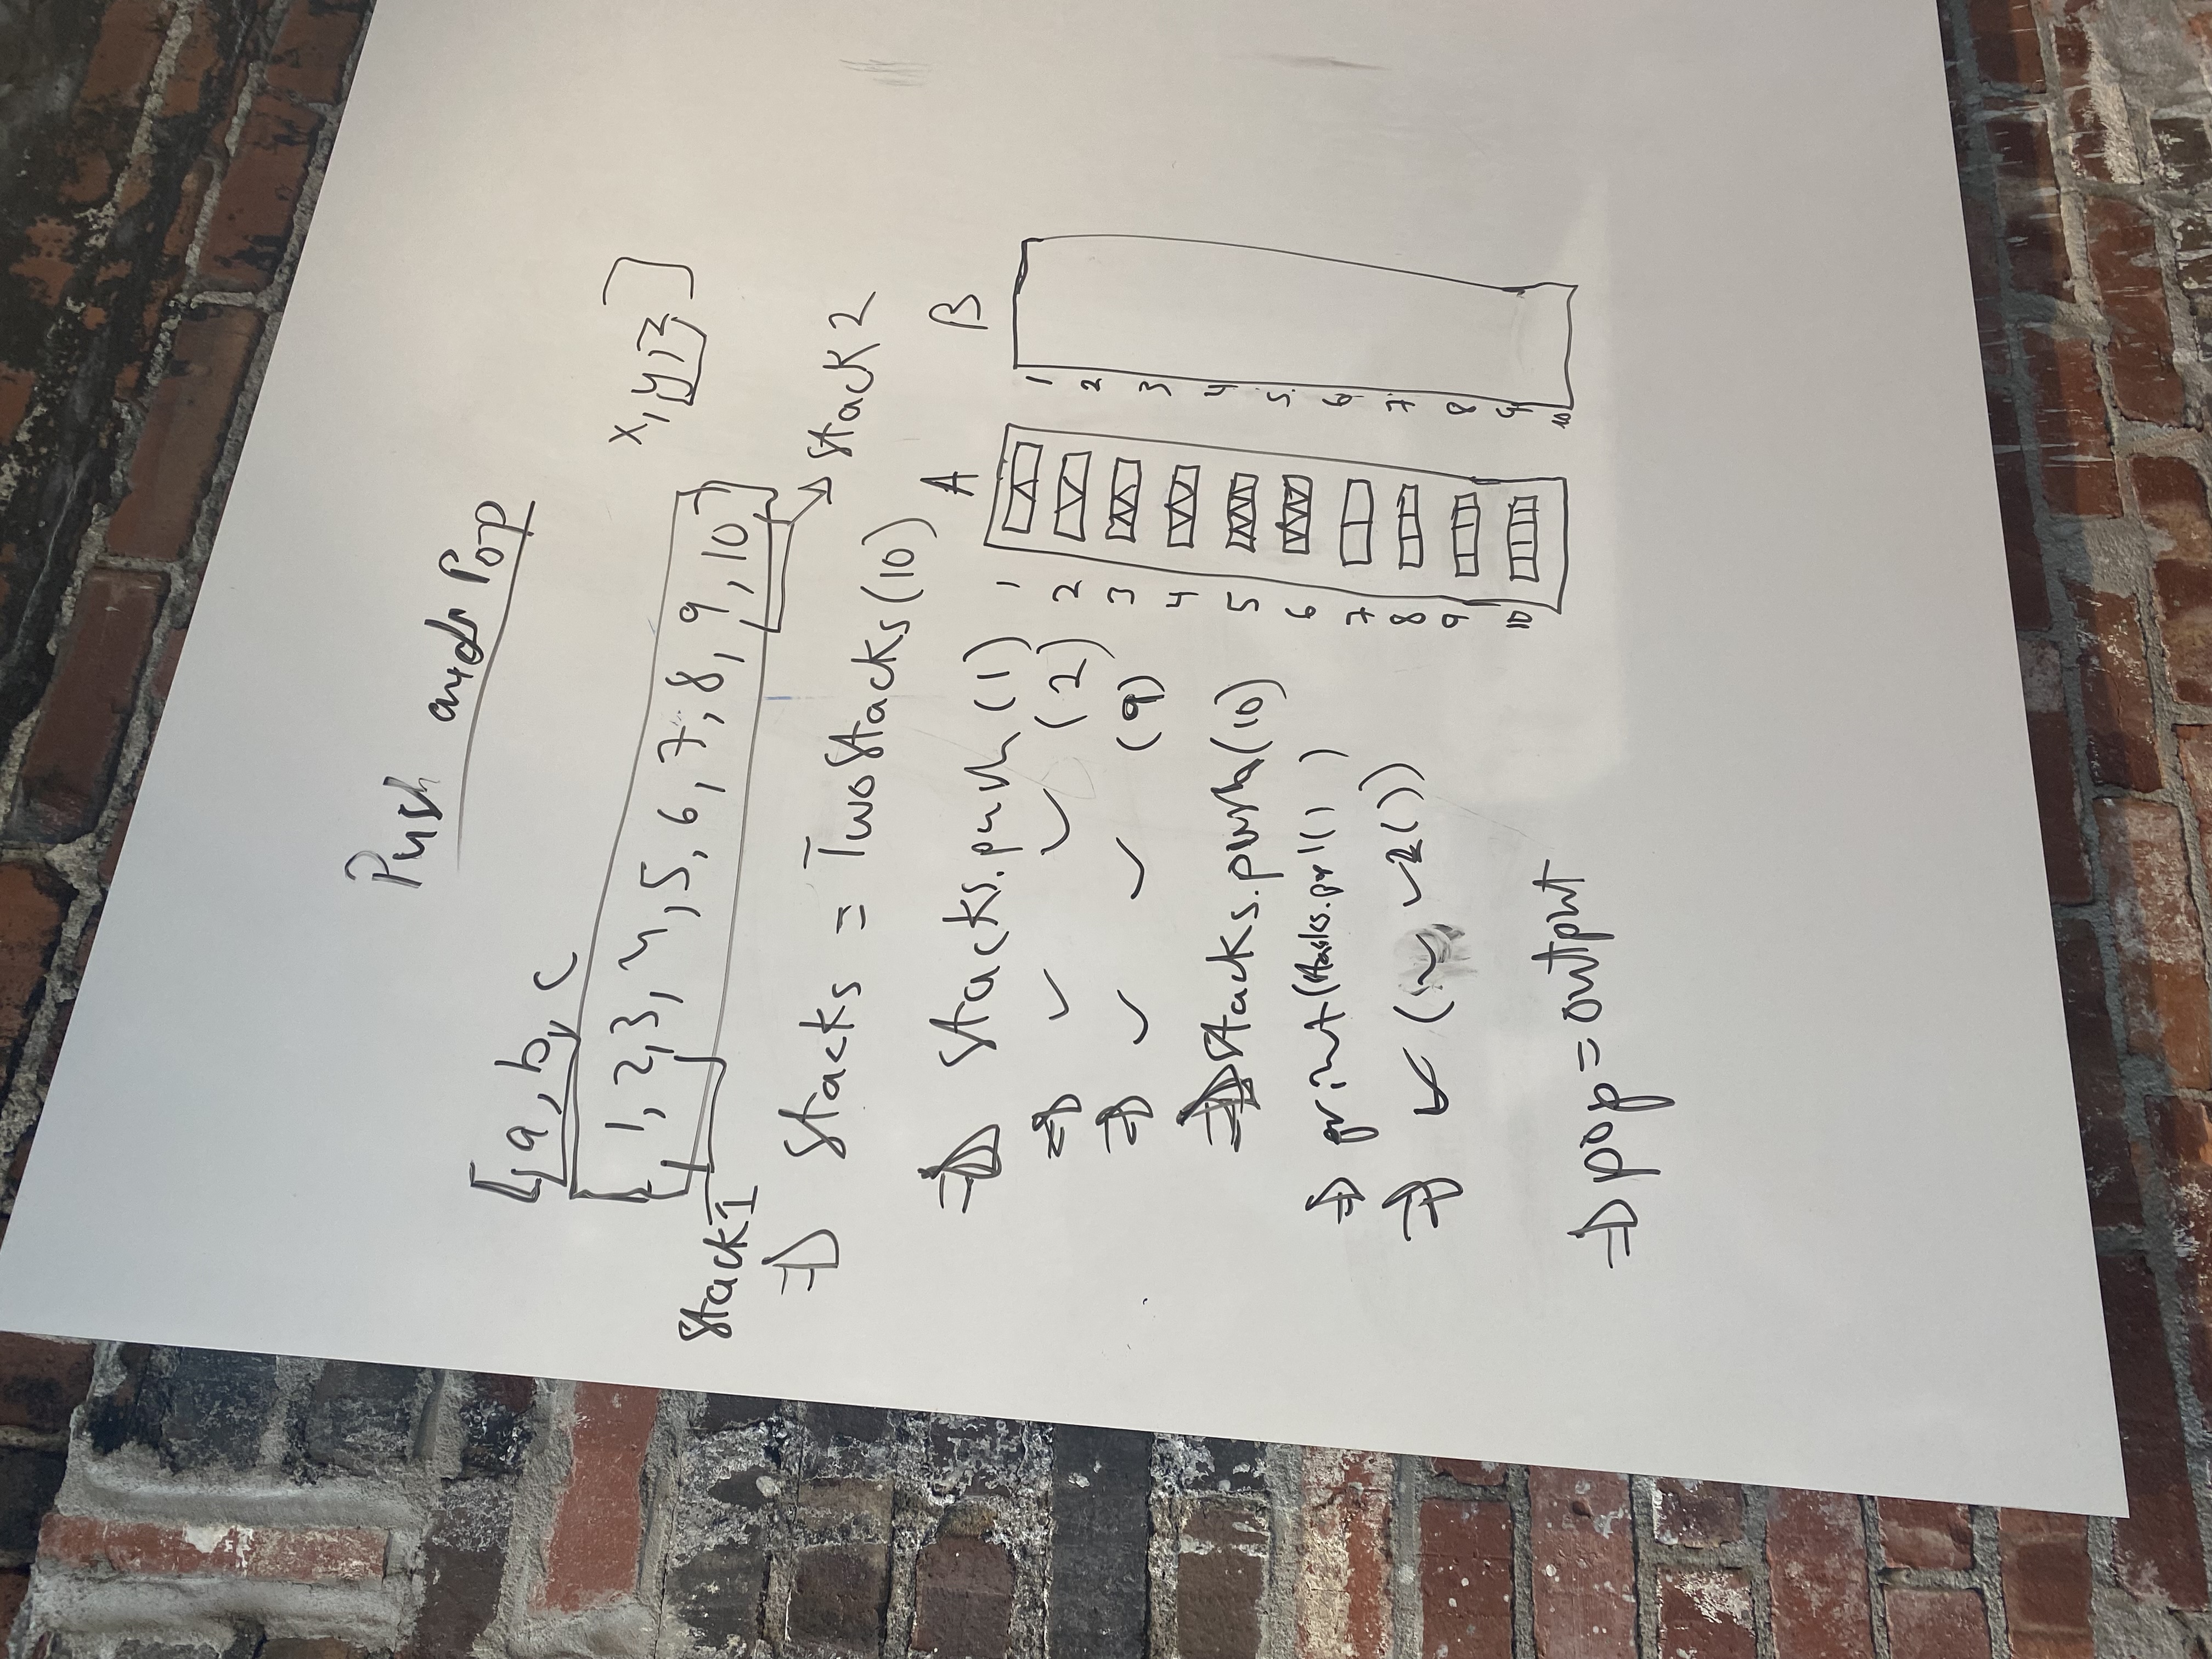 Push and Pop
[a, b, c
x, y, z]
[1, 2, 3, 4, 5, 6, 7, 8, 9, 10]
Stack1
Stack 2
⇒ Stacks = TwoStacks(10)
⇒ Stacks.push (1)
⇒ ✓ ✓ (2)
⇒ ✓ ✓ (9)
⇒ Stacks.push(10)
⇒ print(Stacks.
⇒ ✓ (✓ ✓2())
⇒ pop = output
A
1
2
3
4
5
6
7
8
9
10
B
1
2
3
4
5
6
7
8
9
10